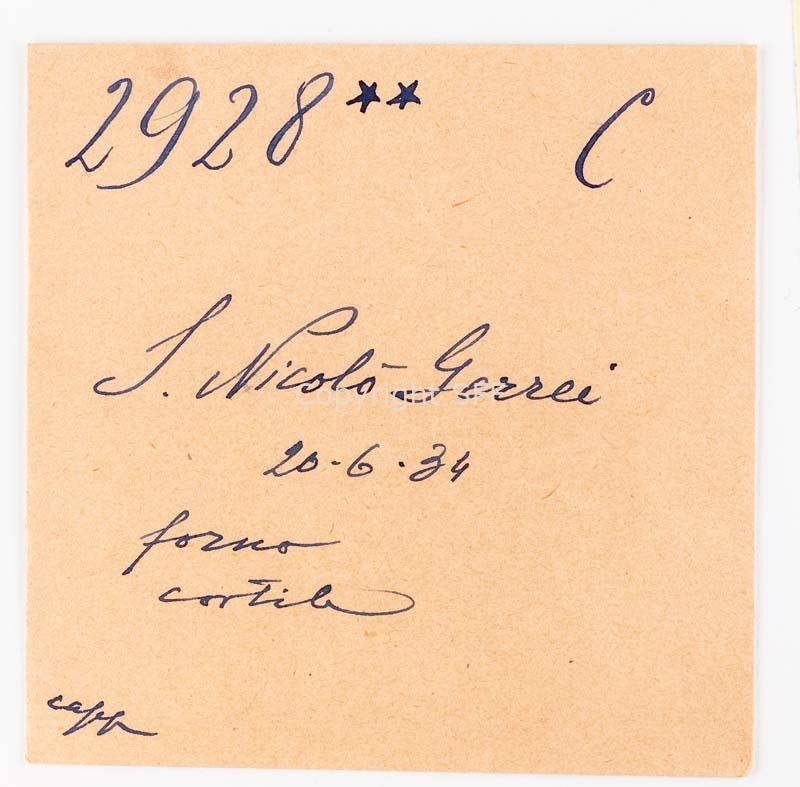 2928** C
S. Nicolò Gerrei
20-6-34
forno
cortile
capp